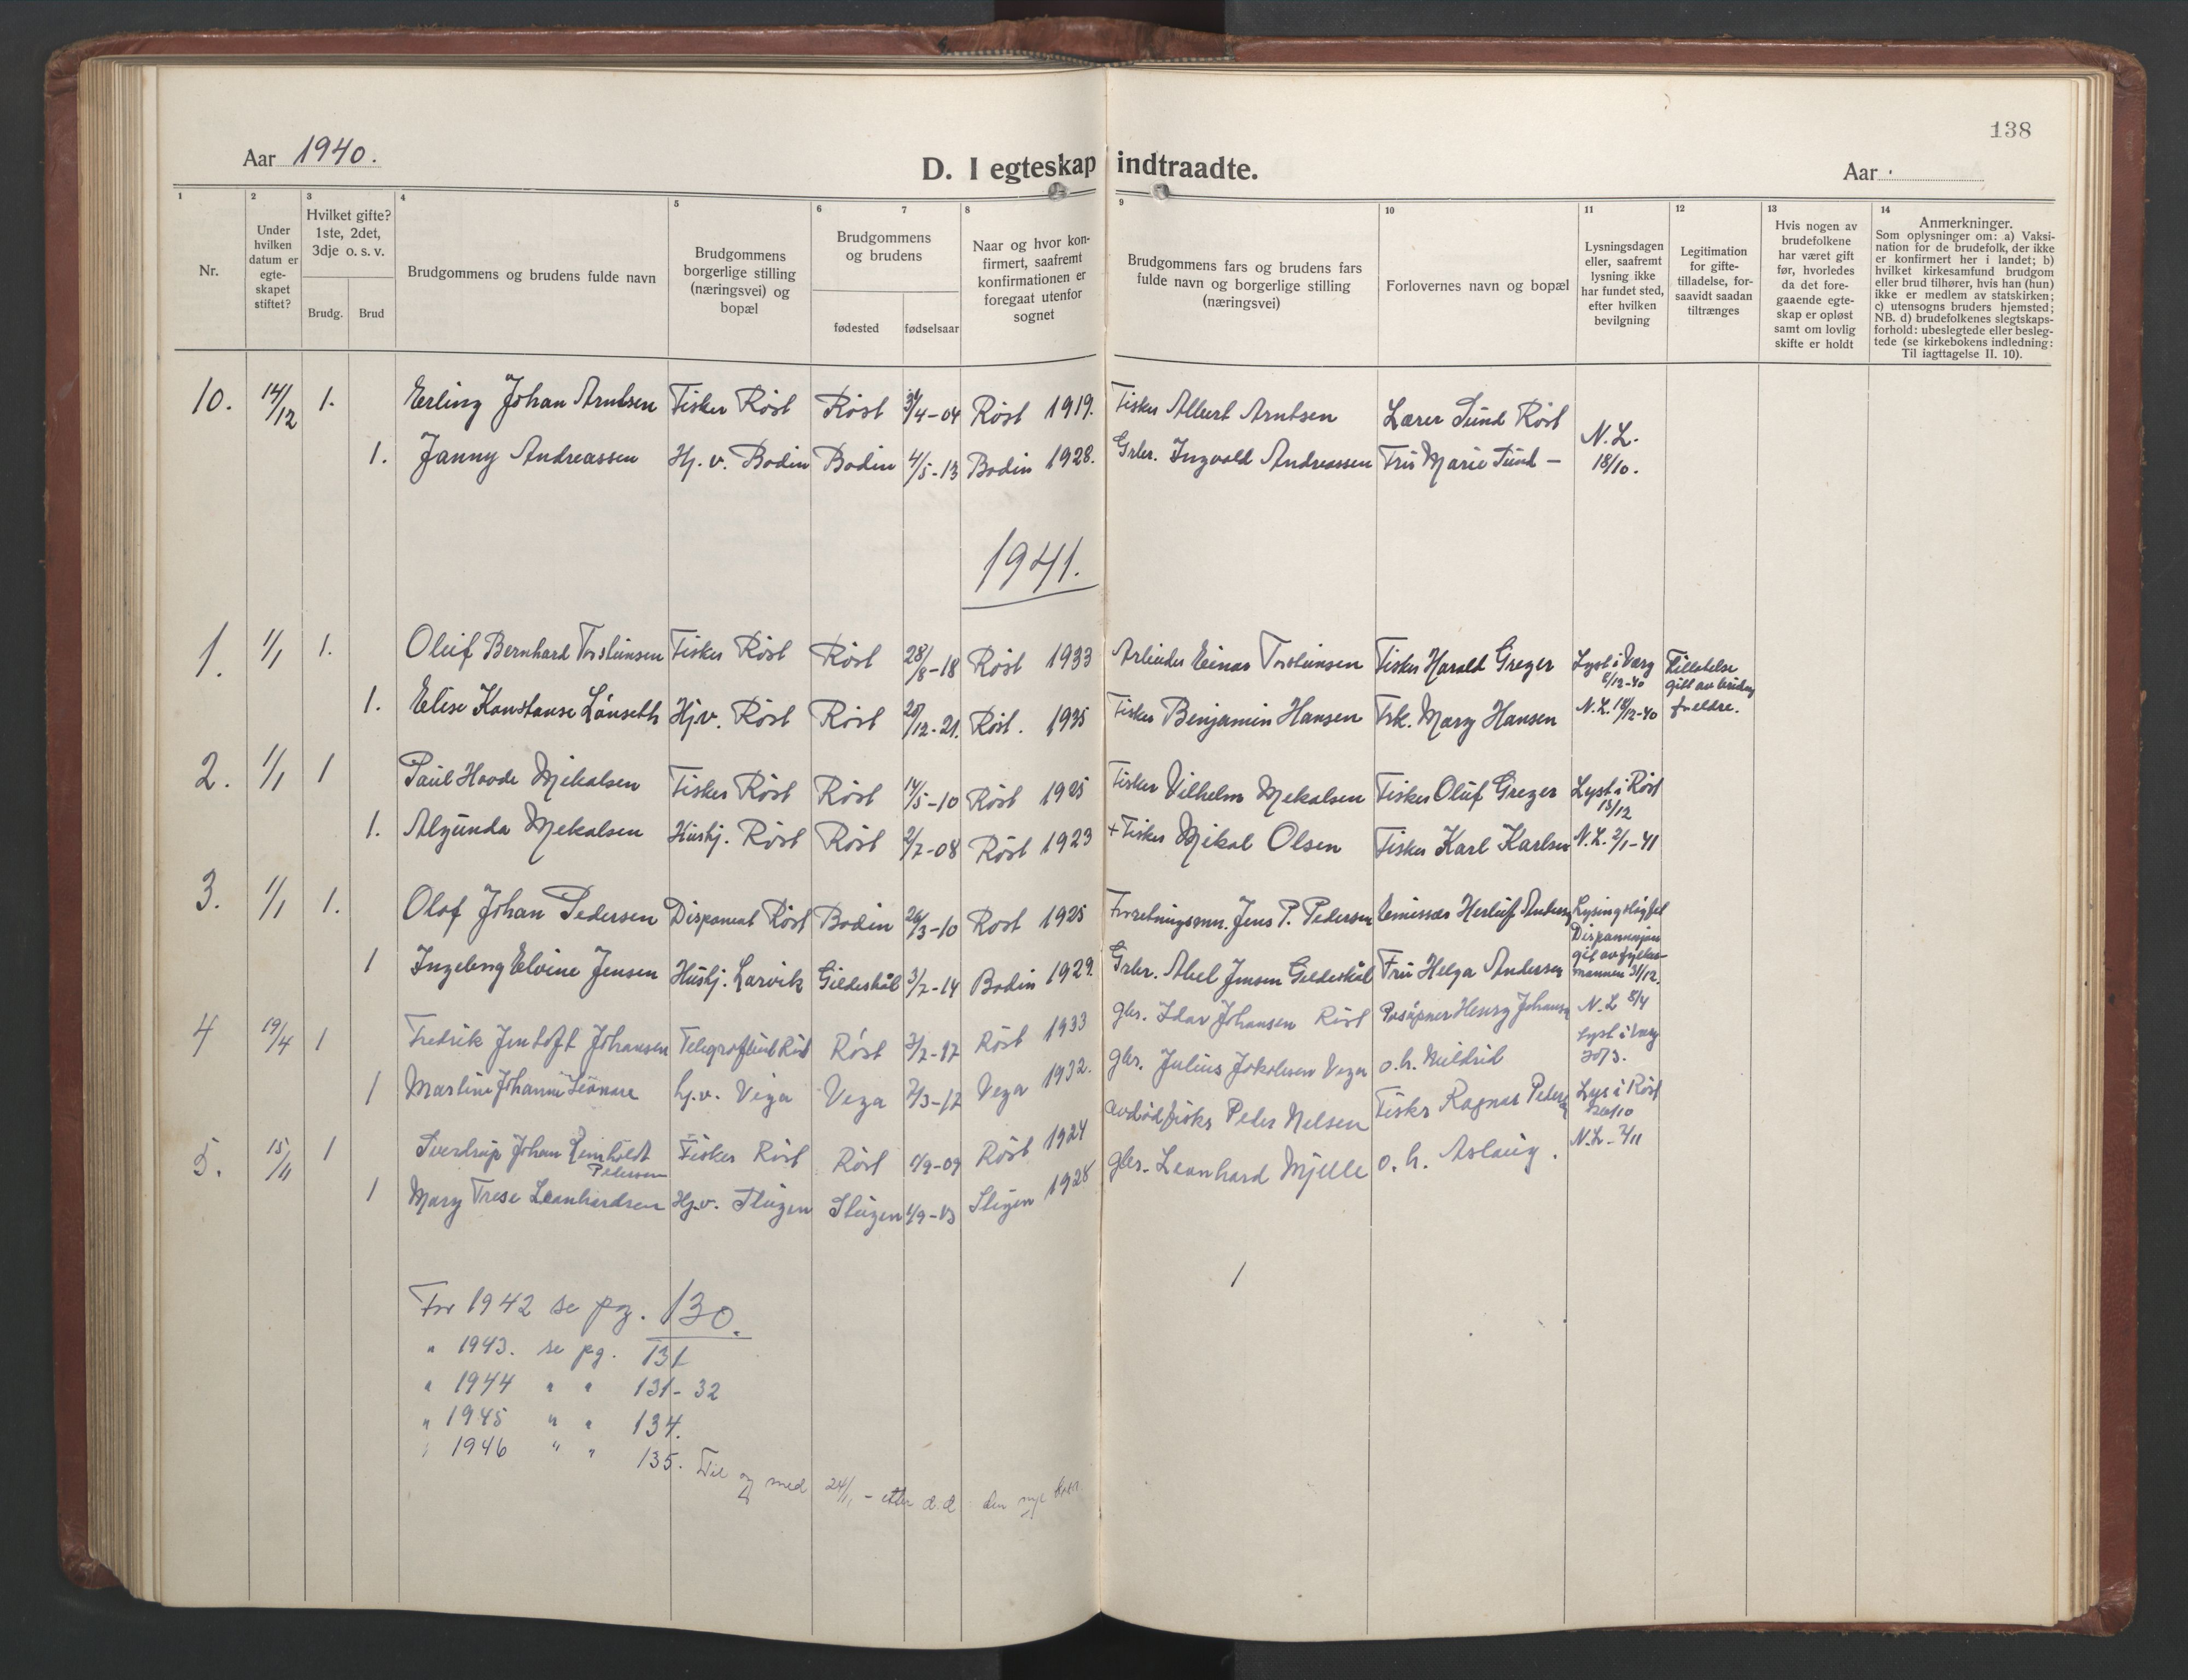 138
Aar 1940.
D. I egteskap indtraadte.
Aar
1 2 3 4 5 6 7 8 9 10 11 12 13 14
Nr.
Under hvilken datum er egte-skapet stiftet?
Hvilket gifte? 1ste, 2det, 3dje o. s. v.
Brudg. Brud
Brudgommens og brudens fulde navn
Brudgommens borgerlige stilling (næringsvei) og bopæl
Brudgommens og brudens
fødested fødselsaar
Naar og hvor kon-firmert, saafremt konfirmationen er foregaat utenfor sognet
Brudgommens fars og brudens fars fulde navn og borgerlige stilling (næringsvei)
Forlovernes navn og bopæl
Lysningsdagen eller, saafremt lysning ikke har fundet sted, efter hvilken bevilgning
Legitimation for gifte-tilladelse, for-saavidt saadan tiltrænges
Hvis nogen av brudefolkene har været gift før, hvorledes da det fore-gaaende egte-skap er opløst samt om lovlig skifte er holdt
Anmerkninger.
Som oplysninger om: a) Vaksi-nation for de brudefolk, der ikke er konfirmert her i landet; b) hvilket kirkesamfund brudgom eller brud tilhører, hvis han (hun) ikke er medlem av statskirken; c) utensogns bruders hjemsted; NB. d) brudefolkenes slegtskaps-forhold: ubeslegtede eller besleg-tede (se kirkebokens indledning: Til iagttagelse II. 10).
10. 14/12 1. Erling Johan Arntsen Fisker Röst Röst /4-04 Röst 1919. Fisker Albert Arntsen Lærer Sund Röst N.L. 18/10.
1. Janny Andreassen Hj.v. Bodin Bodin 4/5-13 Bodin 1928. Grbr. Ingvald Andreassen Fru Marie Sund —
1941.
1. 1/1 1. Oluf Bernhard Torsteinsen Fisker Röst Röst 28/8-18 Röst 1933 Arbeider Einar Torsteinsen Fisker Harald Greger Lyst i Værøy 8/12-40 Tillatelse gitt av brudens foreldre.
1. Elise Konstanse Lånseth Hj.v. Röst Röst /12-21. Röst. 1935 Fisker Benjamin Hansen Frk. Mary Hansen N.L. 18/12-40
2. 1/1 1 Paul Hovde Mikalsen Fisker Röst Röst 14/5-10 Röst 1925 Fisker Vilhelm Mekalsen Fisker Oluf Greger Lyst i Röst 15/12
1. Algunda Mekalsen Hushj. Röst Röst 2/7-08 Röst 1923 + Fisker Mikal Olsen Fisker Karl Karlsen N.L. 2/1-41
3. 1/1 1. Olaf Johan Pedersen Disponent Röst Bodin 26/3-10 Rost 1925 Forretningsmn. Jens P. Pedersen Emissær Herluf Andersen Lysingsløyfel
1 Ingeborg Elvine Jensen Hushj. Larvik Gildeskål 3/7-14 Bodin 1929. Grbr. Abel Jensen Gildeskål Fru Helga Andersen Dispensasjon git av fylkes-mannen 31/12.
4 19/4 1 Fredrik Jentoft Johansen Röst 3/7-17 Röst 1933 gbr. Idar Johansen Röst Henry Johansen N.L 8/4
1 Martine Johanne hj.v. Vega Vega 7/3-17 Vega 1932. gbr. Julius Jakobsen Vega o.h. Mildrid Lyst i Værøy 30/3.
5. 15/11 1 Sverdrup Johan Reinholdt Pedersen Fisker Röst Röst /9-09 Röst 1924 avdöd fisker Peder Nelsen Fisker Ragnar Pedersen Lys i Röst 20/10
1 Mary Trese Leonhardsen Hj.v. Steigen Steigen 1/9-13 Steigen 1928 gbr. Leonhard Mjelle o.h. Aslaug. N.L. 7/11
For 1942 se pg. 130.
" 1943. se pg. 131
" 1944 " " 131-32
" 1945 " " 134.
" 1946 " " 135. Til og med 24/1, - etter d.d. den nye bok.